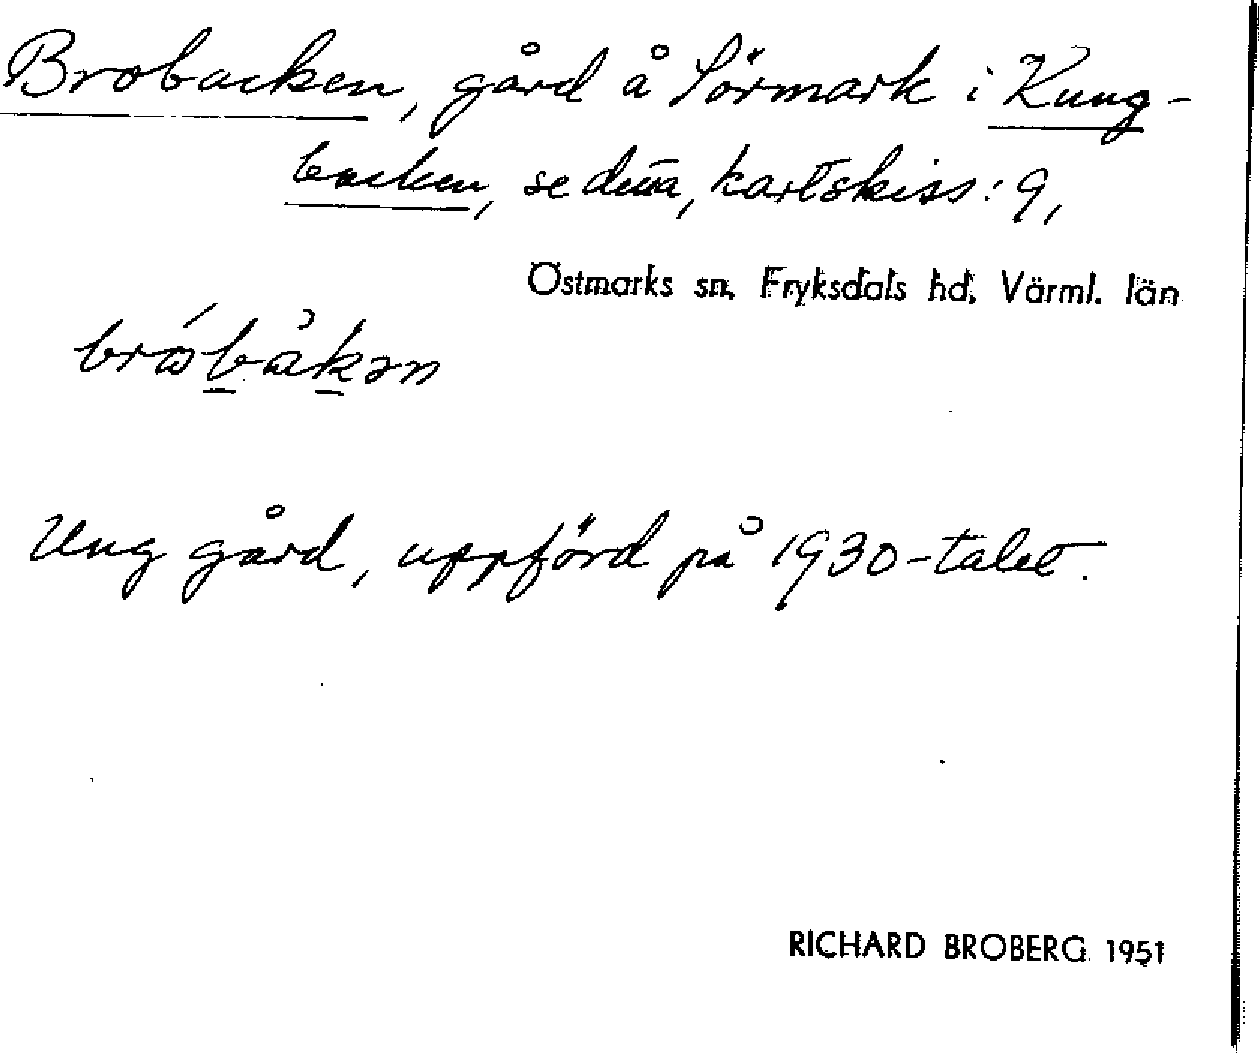 Brobacken, gård å Sörmark i Kung-
backen, se denna, kartskiss: 9,
Östmarks sn. Fryksdals hd. Värml. län
Ung gård, uppförd på 1930-talet.
RICHARD BROBERG 1951